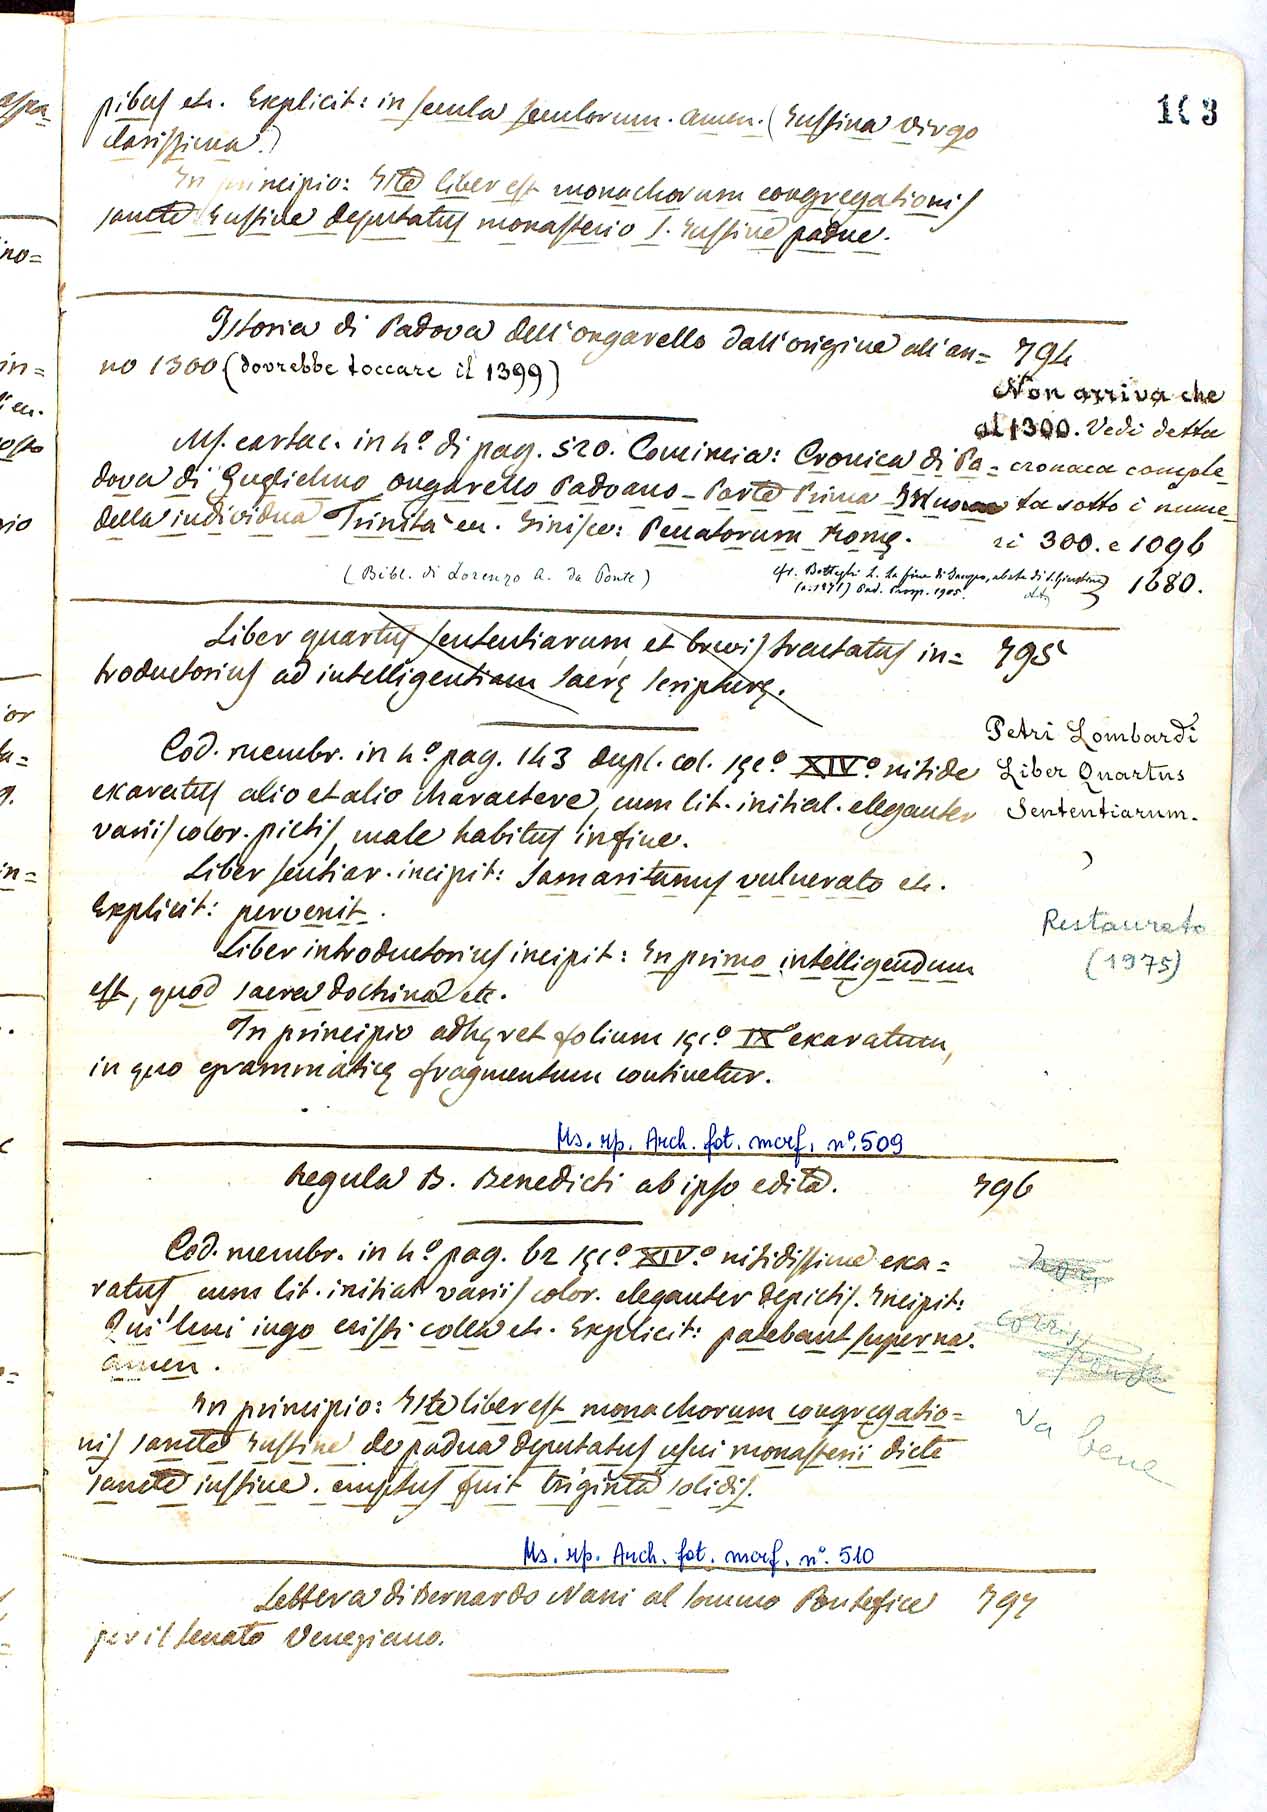 163
pibus etc. Explicit: in secula seculorum. amen. (Iustina virgo
clarissima.)
In principio: Iste liber est monachorum congregationis
sancte Iustine deputatus monasterio S. Iustine padue.
Istoria di Padova dell'ongarello dall'origine all'an=
794
no 1300 (dovrebbe toccare il 1399)
Non arriva che
al 1300. Vedi detta
cronaca comple=
ta sotto i nume=
ri 300. e 1096
1680.
Ms. cartac. in 4º di pag. 520. Comincia: Cronica di Pa=
dova di Guglielmo ongarello Padoano - Parte Prima -
della individua Trinità etc. Finisce: Peccatorum Romę.
(Bibl. di Lorenzo A. da Ponte)
cfr. Botteghi L. La fine di Jacopo, abate di S. Giustina
Pad. Prosp. 1905.
Liber quartus sententiarum et brevis tractatus in=
795
troductorius ad intelligentiam sacrę scripturę.
Petri Lombardi
Liber Quartus
Sententiarum.
Cod. membr. in 4º pag. 143 dupl. col. sęcº XIVº nitide
exaratus alio et alio charactere, cum lit. initial. eleganter
variis color. pictis, male habitus in fine.
Liber sentiar. incipit: Samaritanus vulnerato etc.
Explicit: pervenit.
Restaurato
(1975)
Liber introductorius incipit: In primo intelligendum
est, quod sacra doctrina etc.
In principio adhęret folium sęcº IXº exaratum,
in quo grammaticę fragmentum continetur.
Ms. rp. Arch. fot. morf. nº. 509
Regula B. Benedicti ab ipso edita.
796
Cod. membr. in 4º pag. 62 sęcº XIVº nitidissime exa=
ratus, cum lit. initial variis color. eleganter depictis. Incipit:
Qui leni iugo cristi colla etc. Explicit: patebant superna.
amen.
non
corris
ponde
va bene
In principio: Iste liber est monachorum congregatio=
nis sancte Iustine de padua deputatus usui monasterii dicte
sancte iustine. emptus fuit triginta solidis.
Ms. rp. Arch. fot. morf. nº. 510
Lettera di Bernardo Nani al sommo Pontefice
797
per il senato Veneziano.